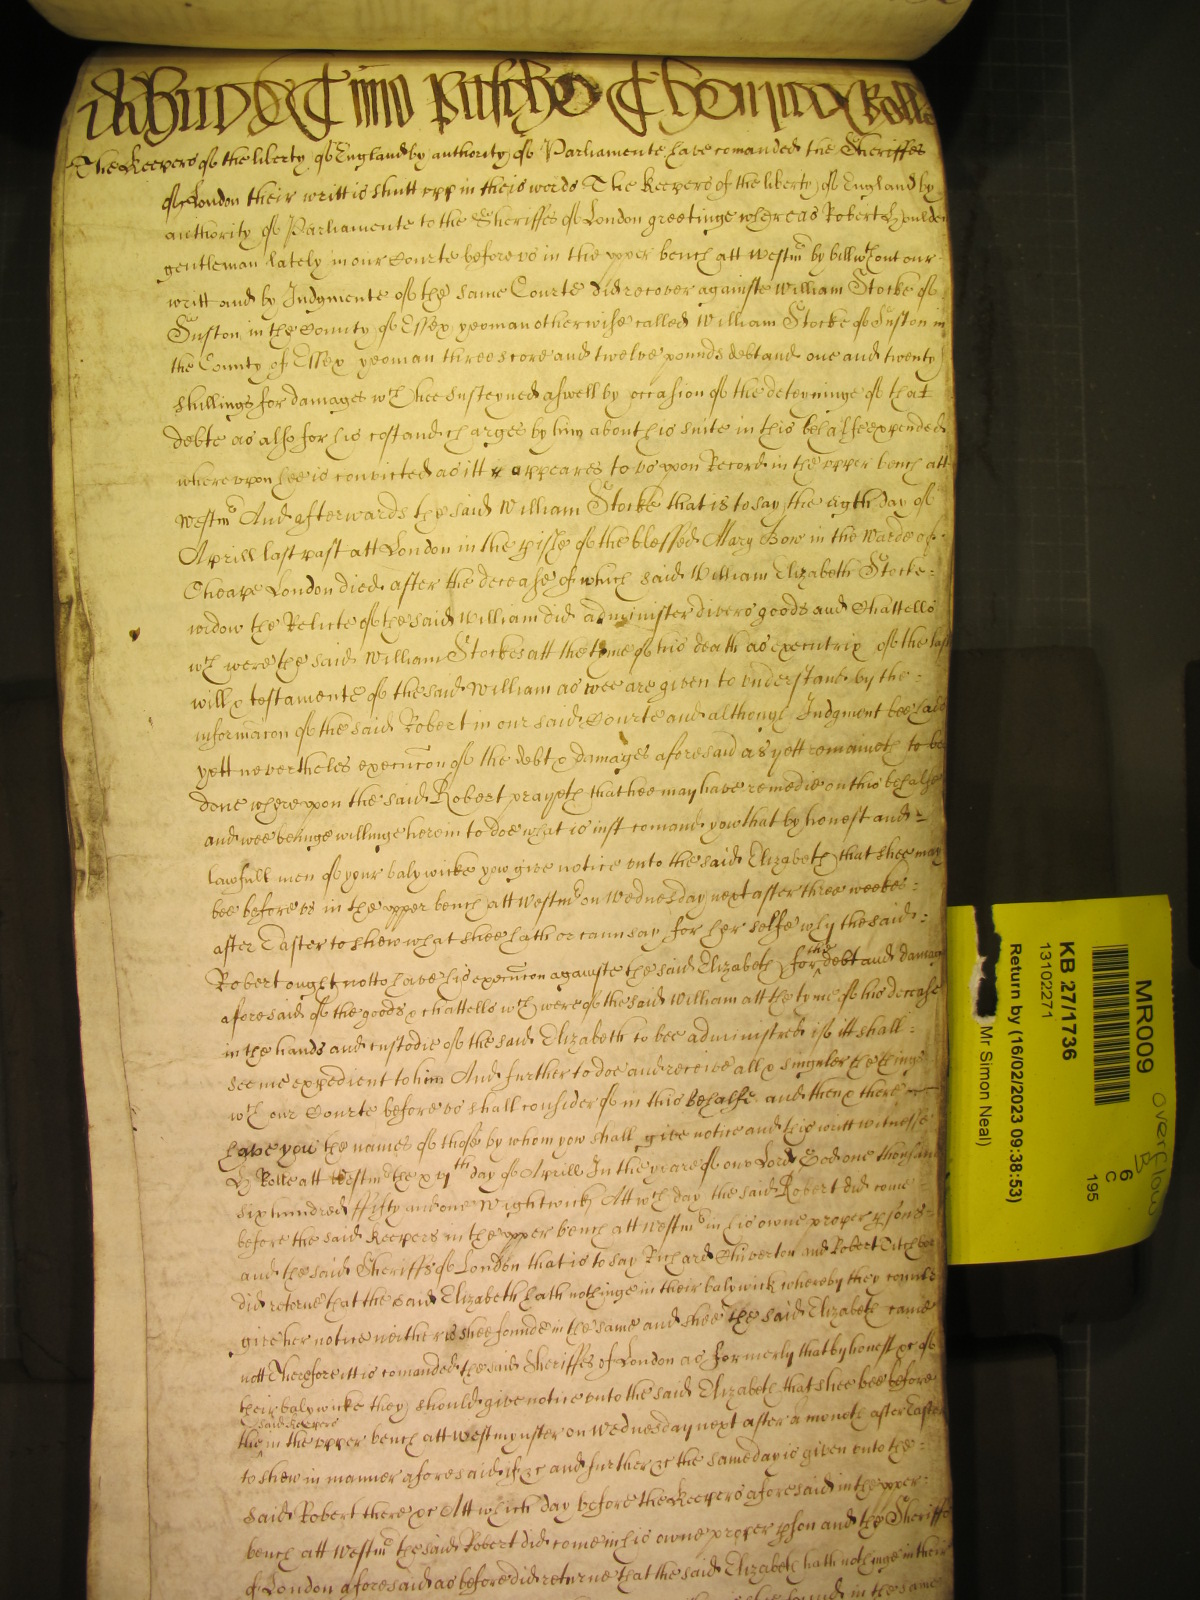 The Keepers of the liberty of England by authority of Parliamente have comanded the Sheriffes
of London their writt is shutt upp in theis words The Keepers of the liberty of England by
authority of Parliamente to the Sheriffes of London greetinge whereas Robert
gentleman lately in our Courte before us in the upper bench att Westmr by bill wthout our
writt and by Judgmente of the same Courte did recover againste William Stocke of
in the County of Essex yeoman otherwise called William Stocke of in
the County of Essex yeoman three score and twelve pounds debt and one and twenty
shillings for damages wch hee susteyned aswell by occasion of the deteyninge of that
debte as also for his cost and charges by him about his suite in this behalfe expended
whereupon hee is convicted as itt appeares to us upon Record in the upper bench att
Westmr And afterwards the said William Stocke that is to say the eigth day of
Aprill last past att London in the pishe of the blessed Mary Bow in the Warde of
Cheape London died after the decease of which said William Elizabeth Stocke
widow the Relicte of the said William did administer divers goods and Chattells
wch were the said William Stockes att the tyme of his death as executrix of the last
will & testamente of the said William as wee are given to understand by the
informacon of the said Robert in our said Courte and although Judgment bee had
yett nevertheles execucon of the debt & damages aforesaid as yett remaineth to be
done whereupon the said Robert prayeth that hee may have remedie on this behalfe
and wee beinge willinge herein to doe what is iust comand yow that by honest and
lawfull men of your balywicke yow give notice unto the said Elizabeth that shee may
bee before us in the upper bench att Westmr on Wednesday next after three weekes
after Easter to shew what shee hath or cann say for her selfe why the said
Robert ought not to have his execucon againste the said Elizabeth for the debt and damag
aforesaid of the goods & chattells wch were of the said William att the tyme of his decease
in the hands and custodie of the said Elizabeth to bee administred if itt shall
seeme expedient to him And further to doe and receive all & singuler the things
wch our Courte before us shall consider of in this behalfe and then & there
have you the names of those by whom yow shall give notice and this writt witnesse
H Rolle att Westmr the xvjth day of Aprill In the yeare of our Lord God one thousand
six hundred fifty and one Wightwick Att wch day the said Robert did come
before the said Keepers in the upper bench att Westmr in his owne proper pson
and the said Sheriffs of London that is to say Richard Chiverton and Robert Titchbor
did retorne that the said Elizabeth hath nothinge in their balywick whereby they could
give her notice neither is shee founde in the same and shee the said Elizabeth came
nott Therefore itt is comanded the said Sheriffes of London as formerly that by honest &c of
their balywicke they should give notice unto the said Elizabeth that shee bee before
the said Keepers in the upper bench att Westmynster on Wednesday next after a month after Easter
to shew in manner aforesaid if &c and further &c the same day is given unto the
said Robert there &c Att which day before the Keepers aforesaid in the upper
bench att Westmr the said Robert did come in his owne proper pson and the Sheriffs
of London aforesaid as before did returne that the said Elizabeth hath nothinge in their
found in the same
MR009
KB 27/1736
13102271
Return by (16/02/2023 09:38:53)
Mr Simon Neal)
6
C
195
Overflow
B